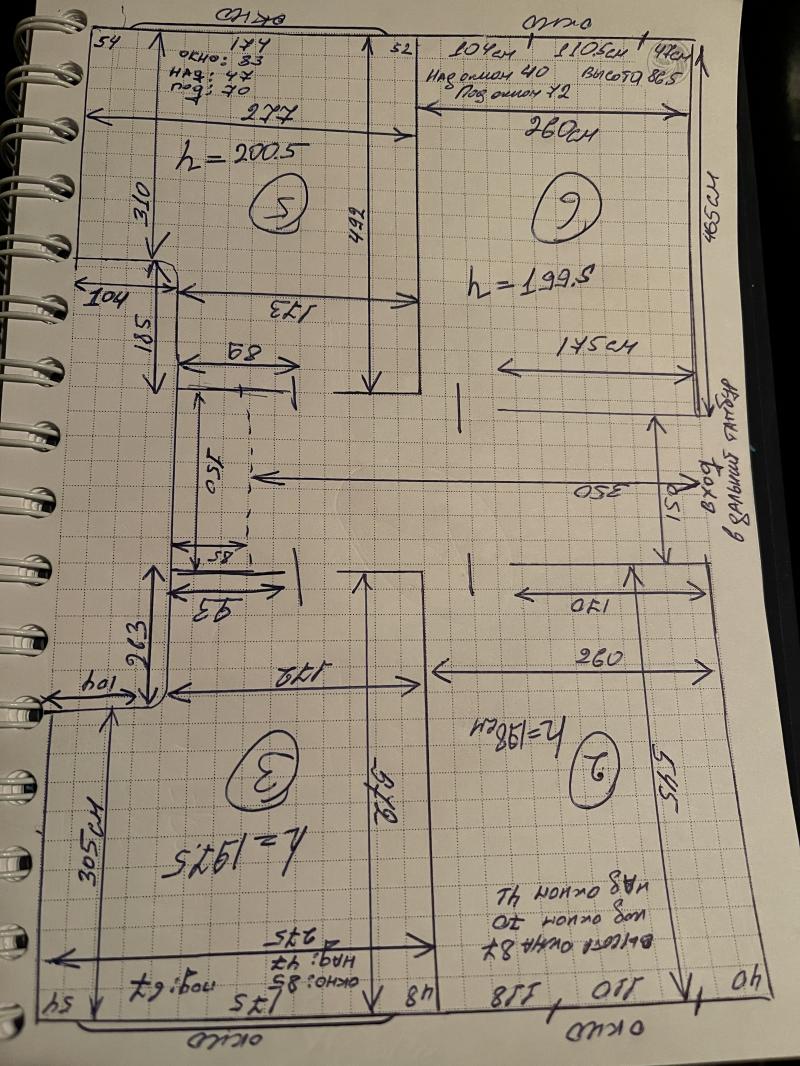 окно
окно
54
174
52
104см
110.5см
47см
окно: 83
над: 47
под: 70
Над окном 40
Высота 86.5
Под окном 72
277
260см
h=200.5
5
6
310
492
465см
h=199.5
104
173
185
89
175см
150
350
вход
в дальний тамбур
85
93
170
263
104
172
260
h=198см
3
2
572
545
305см
h=197.5
над окном 41
под окном 70
высота окна 87
275
над: 47
окно: 85
под: 67
54
175
48
118
110
40
окно
окно